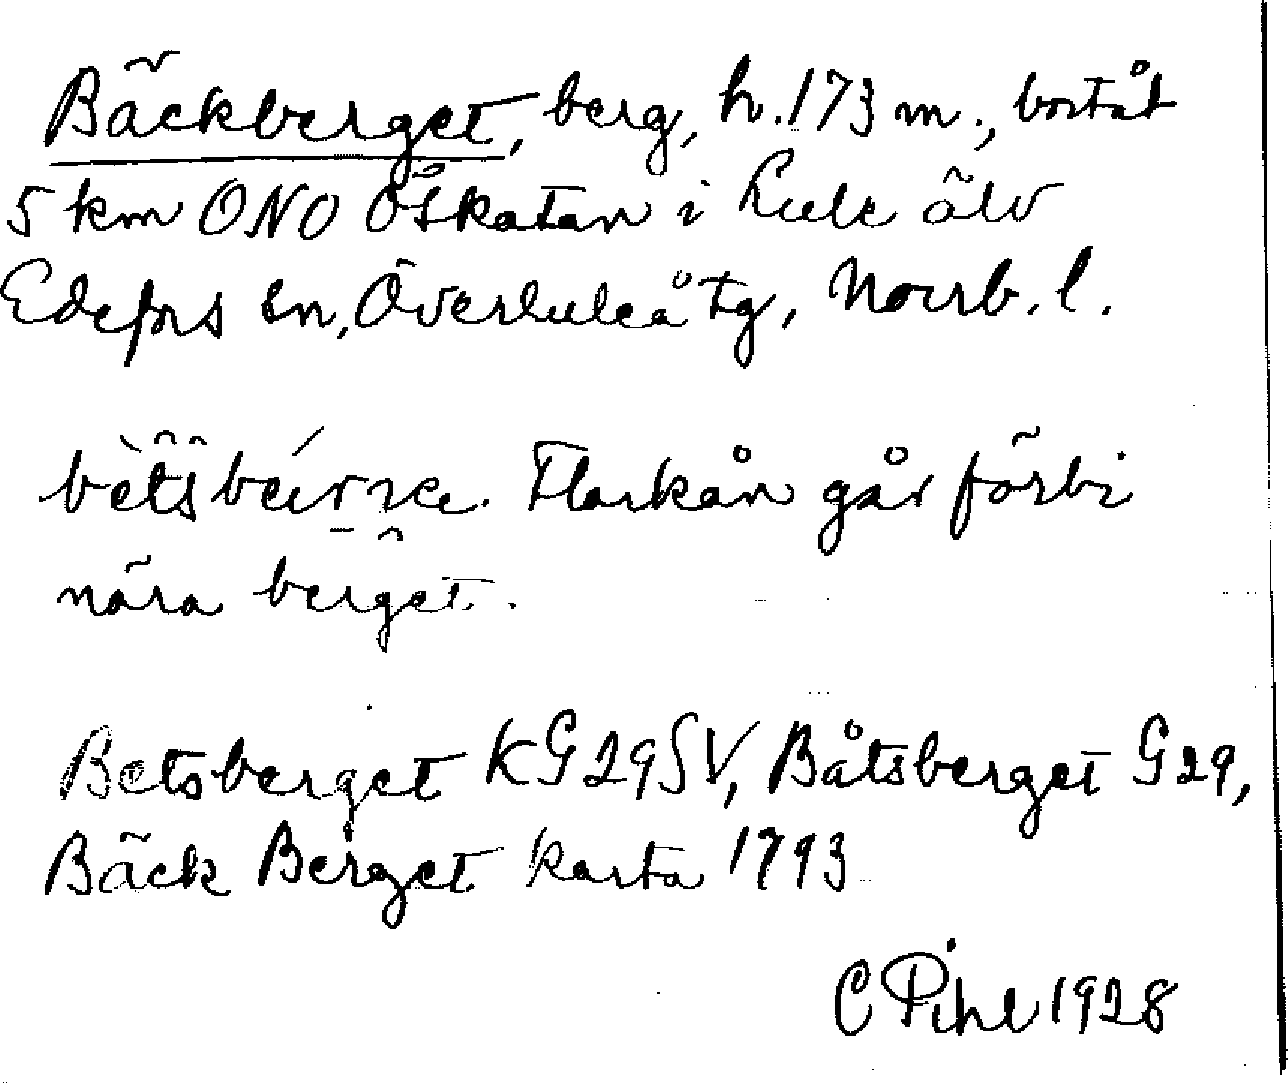 Bäckberget, berg, h. 173 m., bortåt
5 km ONO Öskatan i Lule älv
Edefors sn, Överluleå tg, Norrb. l.
Flarkån går förbi
nära berget.
Betsberget KG29SV, Båtsberget G29,
Bäck Berget karta 1793
C Pihl 1928